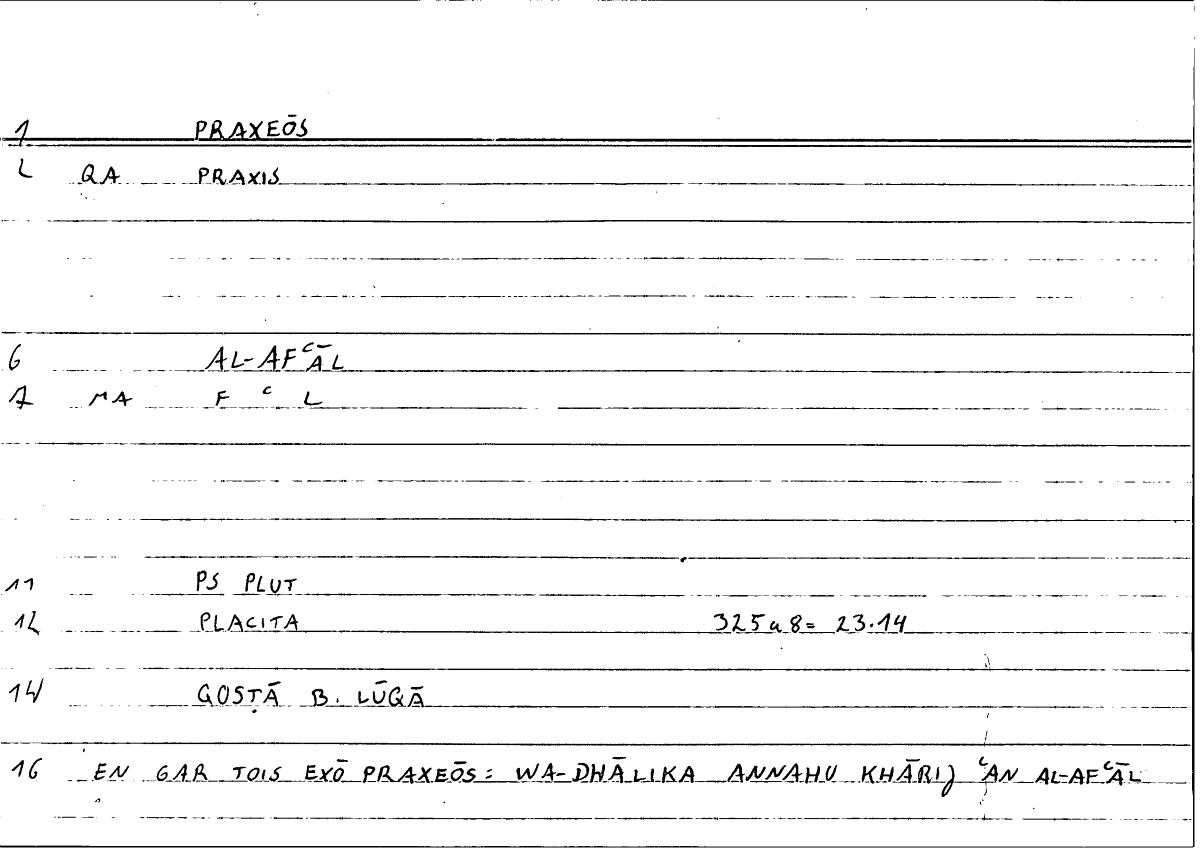 1 PRAXEŌS
L QA PRAXIS
6 AL-AFʿĀL
7 MA F ʿ L
11 PS PLUT
12 PLACITA 325a8= 23.14
14 QOSṬĀ B. LŪQĀ
16 EN GAR TOIS EXŌ PRAXEŌS: WA-DHĀLIKA ANNAHU KHĀRIJ ʿAN AL-AFʿĀL